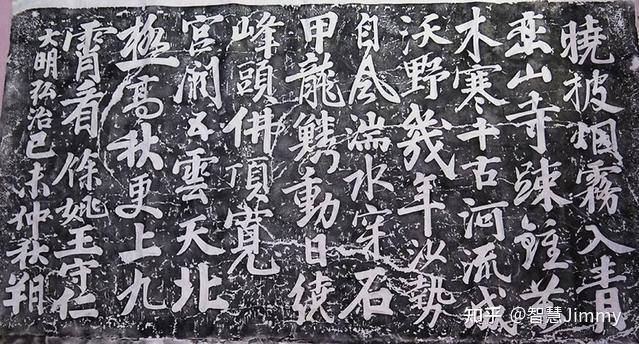 曉披烟霧入青
巒山寺踈鍾萬
木寒千古河流成
沃野幾年沙勢
自風湍水穿石
甲龍鱗動日繞
峰頭佛頂寬
宮闕五雲天北
極高秋更上九
霄看 餘姚王守仁
大明弘治己未仲秋朔
知乎 @智慧Jimmy